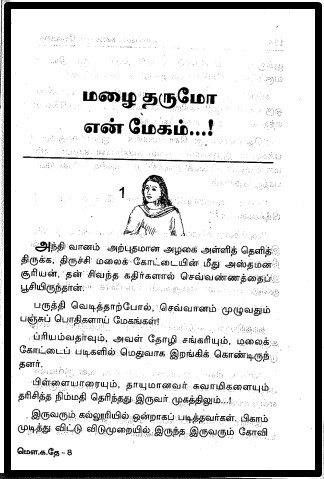 மழை தருமோ
என் மேகம்...!
1
அந்தி வானம் அற்புதமான அழகை அள்ளித் தெளித்
திருக்க, திருச்சி மலைக் கோட்டையின் மீது அஸ்தமன
சூரியன், தன் சிவந்த கதிர்களால் செவ்வண்ணத்தைப்
பூசியிருந்தான்.
பருத்தி வெடித்தாற்போல், செவ்வானம் முழுவதும்
பஞ்சுப் பொதிகளாய் மேகங்கள்!
ப்ரியம்வதாவும், அவள் தோழி சங்கரியும், மலைக்
கோட்டைப் படிகளில் மெதுவாக இறங்கிக் கொண்டிருந்
தனர்.
பிள்ளையாரையும், தாயுமானவர் சுவாமிகளையும்
தரிசித்த நிம்மதி தெரிந்தது இருவர் முகத்திலும்...!
இருவரும் கல்லூரியில் ஒன்றாகப் படித்தவர்கள். பிகாம்
முடித்து விட்டு விடுமுறையில் இருந்த இருவரும் கோவி
மௌ.க.தே - 8